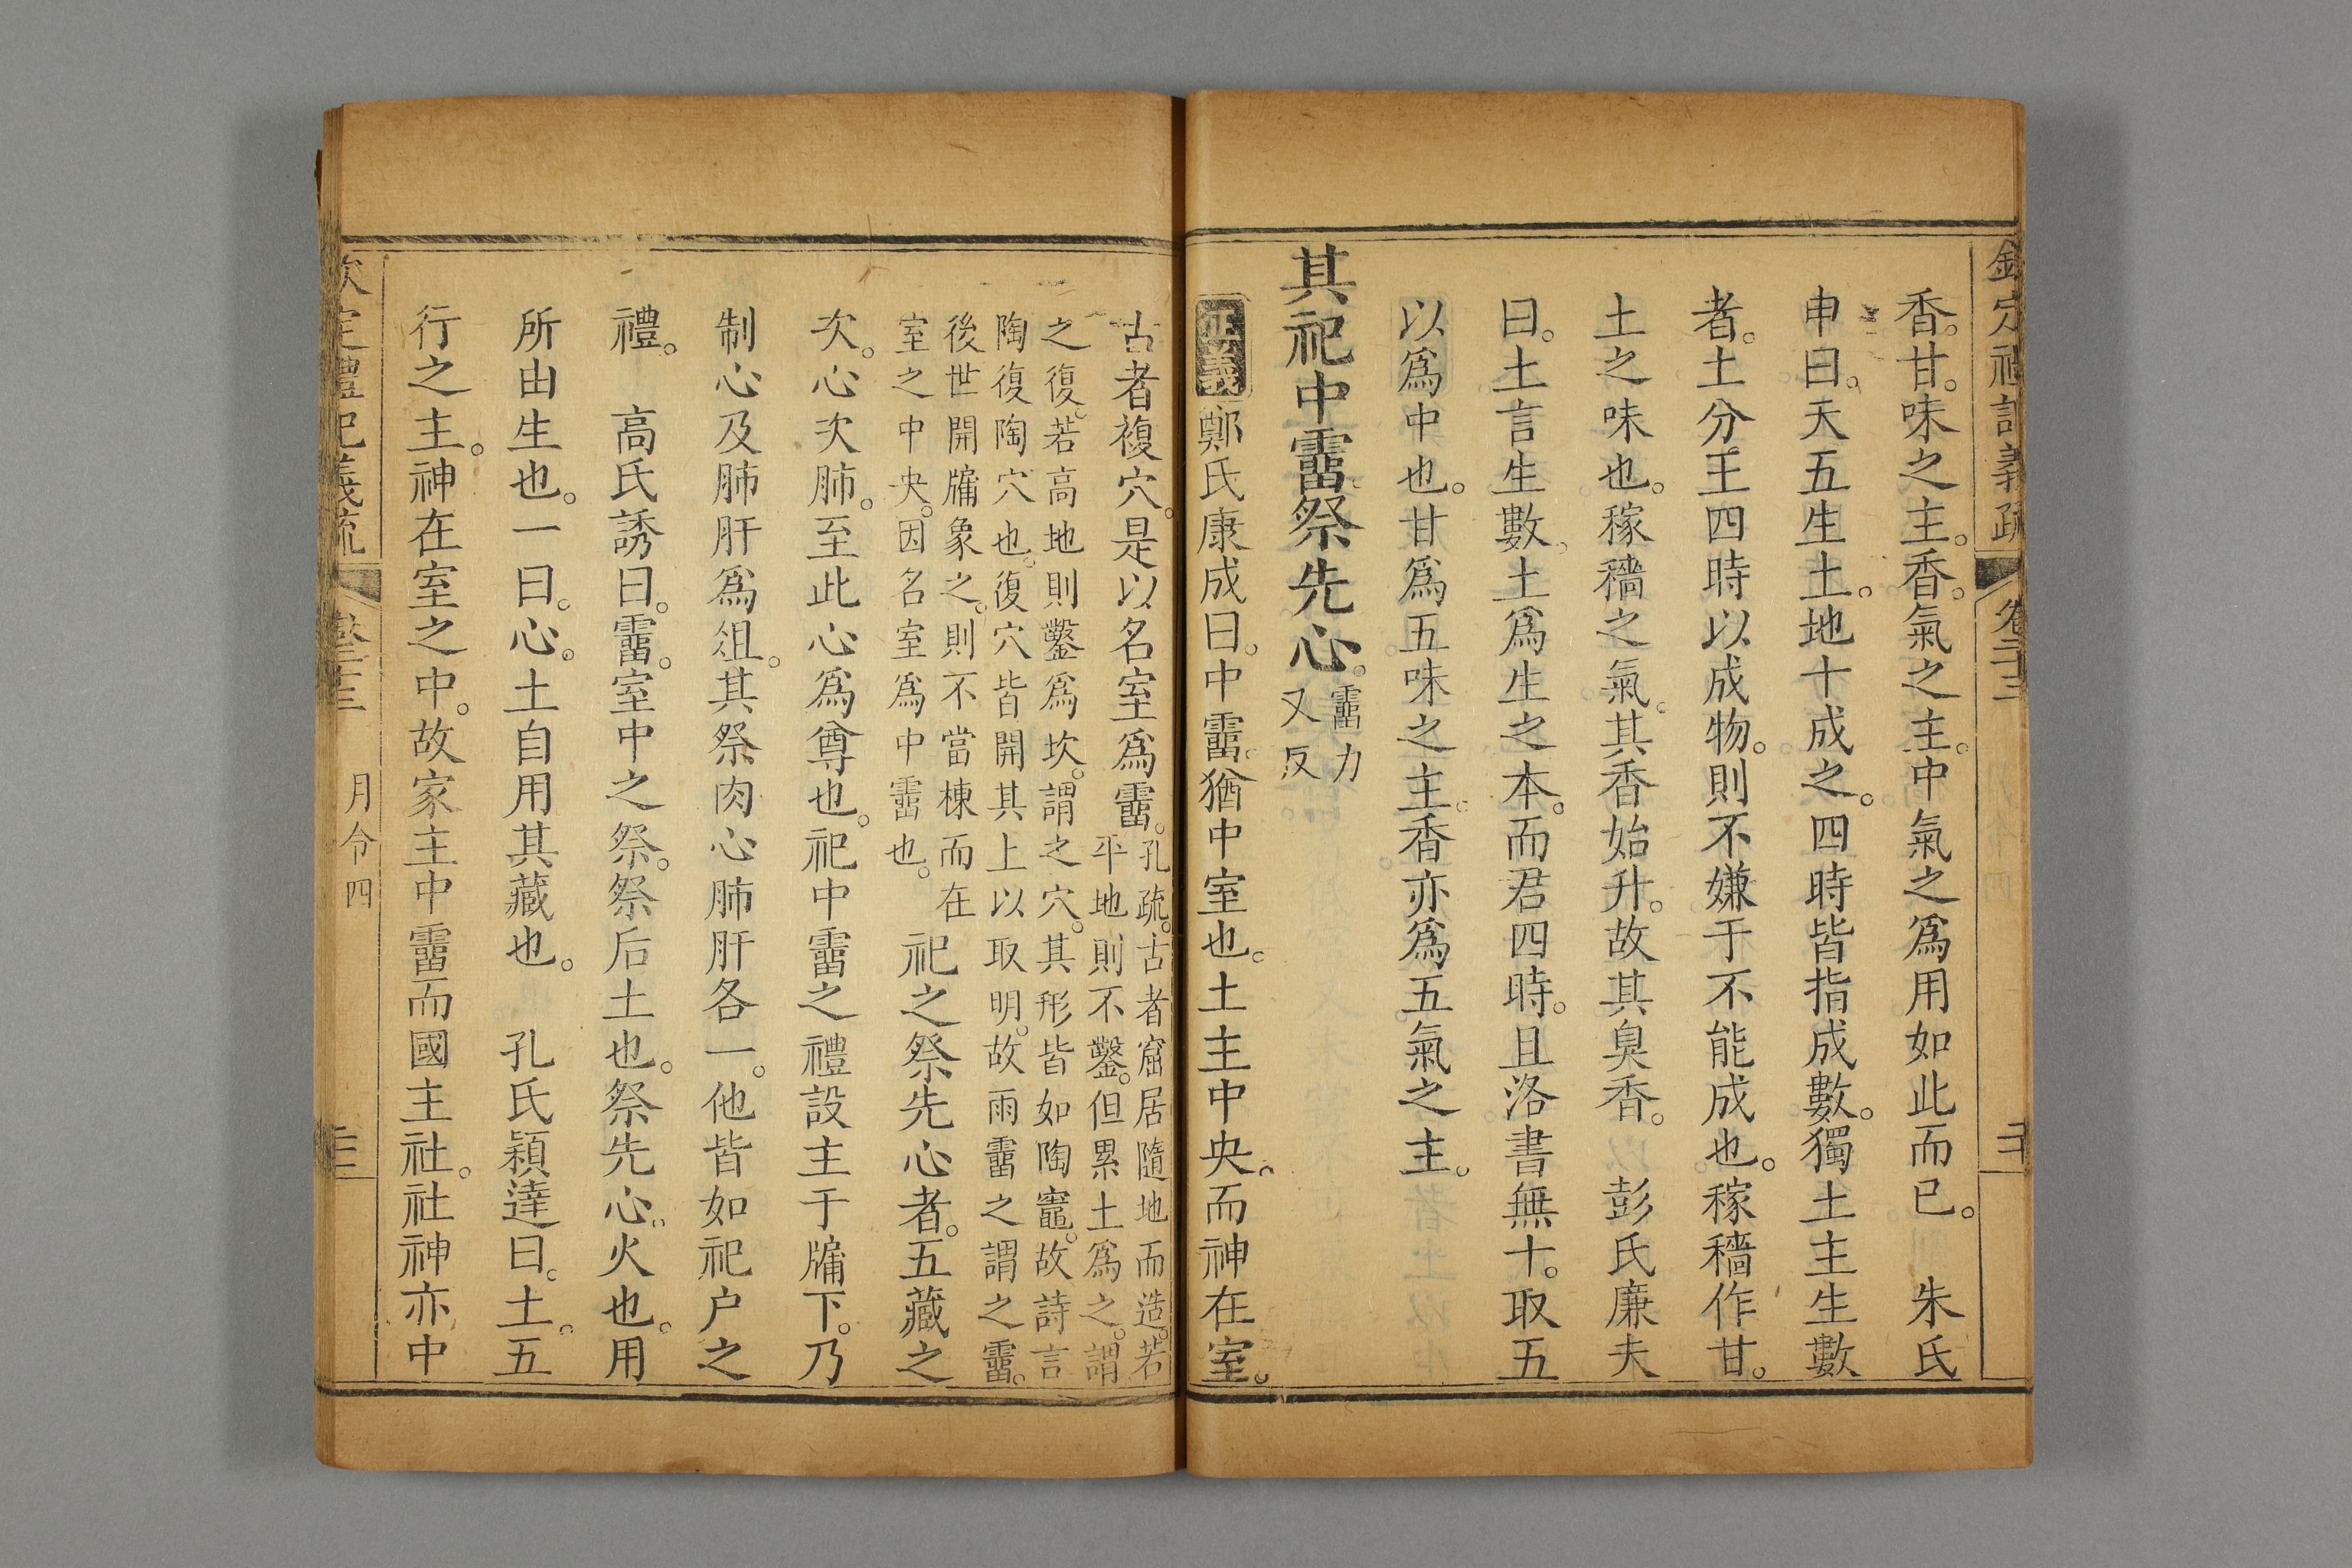 欽定禮記義疏 卷二十三 二十
香。甘。味之主。香。氣之主。中氣之爲用如此而已。 朱氏
申曰。天五生土。地十成之。四時皆指成數。獨土主生數
者。土分王四時以成物。則不嫌于不能成也。稼穡作甘。
土之味也。稼穡之氣。其香始升。故其臭香。 彭氏廉夫
曰。土言生數。土爲生之本。而君四時。且洛書無十。取五
以爲中也。甘爲五味之主。香亦爲五氣之主。
其祀中霤祭先心。霤力
又反
正義 鄭氏康成曰。中霤。猶中室也。土主中央。而神在室。
古者複穴。是以名室爲霤。孔疏。古者窟居隨地而造。若
平地則不鑿。但累土爲之。謂
之復。若高地則鑿爲坎。謂之穴。其形皆如陶竈。故詩言
陶復陶穴也。復穴皆開其上以取明。故雨霤之謂之霤。
後世開牖象之。則不當棟而在
室之中央。因名室爲中霤也。 祀之祭先心者。五藏之
次。心次肺。至此心爲尊也。祀中霤之禮設主于牖下。乃
制心及肺肝爲俎。其祭肉心肺肝各一。他皆如祀户之
禮。 高氏誘曰。霤。室中之祭。祭后土也。祭先心。火也。用
所由生也。一曰。心。土自用其藏也。 孔氏穎達曰。土。五
行之主。神在室之中。故家主中霤而國主社。社神亦中
欽定禮記義疏 卷二十三 月令四